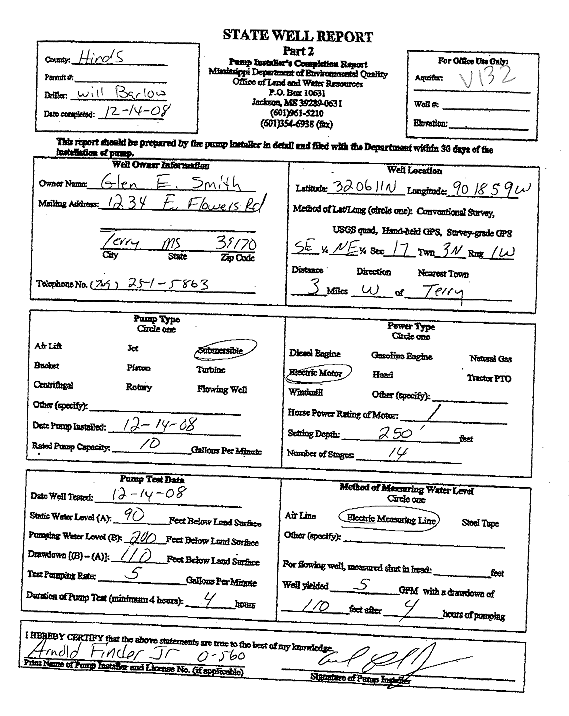 STATE WELL REPORT
Part 2
Pump Installer's Completion Report
Mississippi Department of Environmental Quality
Office of Land and Water Resources
P.O. Box 10631
Jackson, MS 39289-0631
(601)961-5210
(601)354-6938 (fax)
County: Hinds
Permit #:
Driller: Will Barlow
Date completed: 12-14-08
For Office Use Only:
Aquifer: V132
Well #:
Elevation:
This report should be prepared by the pump installer in detail and filed with the Department within 30 days of the
installation of pump.
Well Owner Information
Owner Name: Glen E. Smith
Mailing Address: 1234 E. Flowers Rd
Terry MS 39170
City State Zip Code
Telephone No. 251-5863
Well Location
Latitude: 320611N Longitude: 901859W
Method of Lat/Long (circle one): Conventional Survey,
USGS quad, Hand-held GPS, Survey-grade GPS
SE ¼ NE ¼ Sec 17 Twn 3N Rng 1W
Distance Direction Nearest Town
3 Miles W of Terry
Pump Type
Circle one
Air Lift Jet Submersible
Bucket Piston Turbine
Centrifugal Rotary Flowing Well
Other (specify):
Date Pump Installed: 12-14-08
Rated Pump Capacity: 10 Gallons Per Minute
Power Type
Circle one
Diesel Engine Gasoline Engine Natural Gas
Electric Motor Hand Tractor PTO
Windmill Other (specify):
Horse Power Rating of Motor: 1
Setting Depth: 250' feet
Number of Stages: 14
Pump Test Data
Date Well Tested: 12-14-08
Static Water Level (A): 90 Feet Below Land Surface
Pumping Water Level (B): 200 Feet Below Land Surface
Drawdown [(B) – (A)]: 110 Feet Below Land Surface
Test Pumping Rate: 5 Gallons Per Minute
Duration of Pump Test (minimum 4 hours): 4 hours
Method of Measuring Water Level
Circle one
Air Line Electric Measuring Line Steel Tape
Other (specify):
For flowing well, measured shut in head: feet
Well yielded 5 GPM with a drawdown of
110 feet after 4 hours of pumping
I HEREBY CERTIFY that the above statements are true to the best of my knowledge.
Arnold Finder Jr 0-560
Print Name of Pump Installer and License No. (if applicable)
Signature of Pump Installer